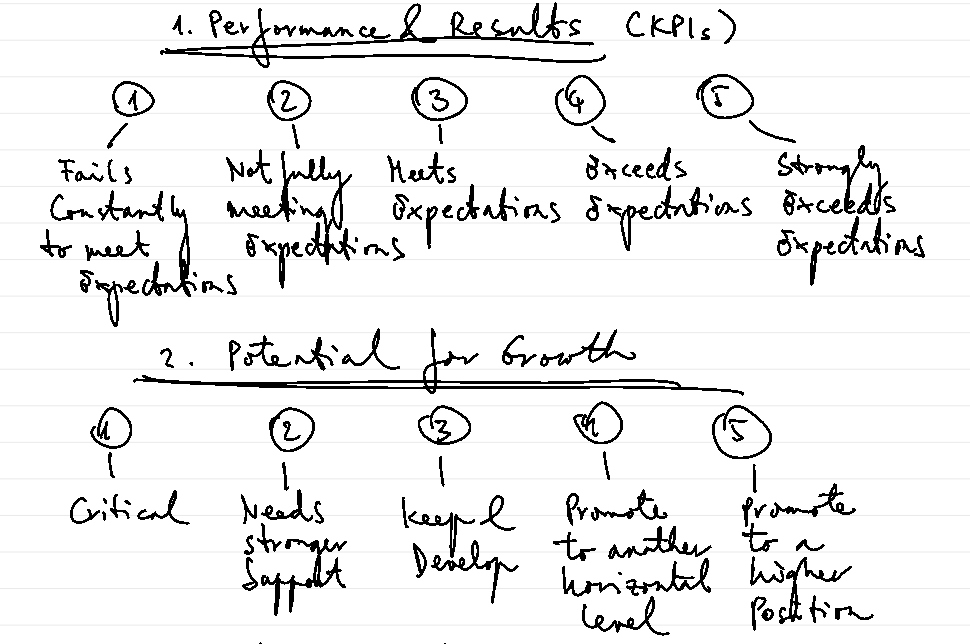 1. Performance & Results (KPIs)
1 2 3 4 5
Fails
Constantly
to meet
Expectations
Not fully
meeting
Expectations
Meets
Expectations
Exceeds
Expectations
Strongly
Exceeds
Expectations
2. Potential for Growth
1 2 3 4 5
Critical
Needs
stronger
Support
Keep &
Develop
Promote
to another
horizontal
level
Promote
to a
higher
Position